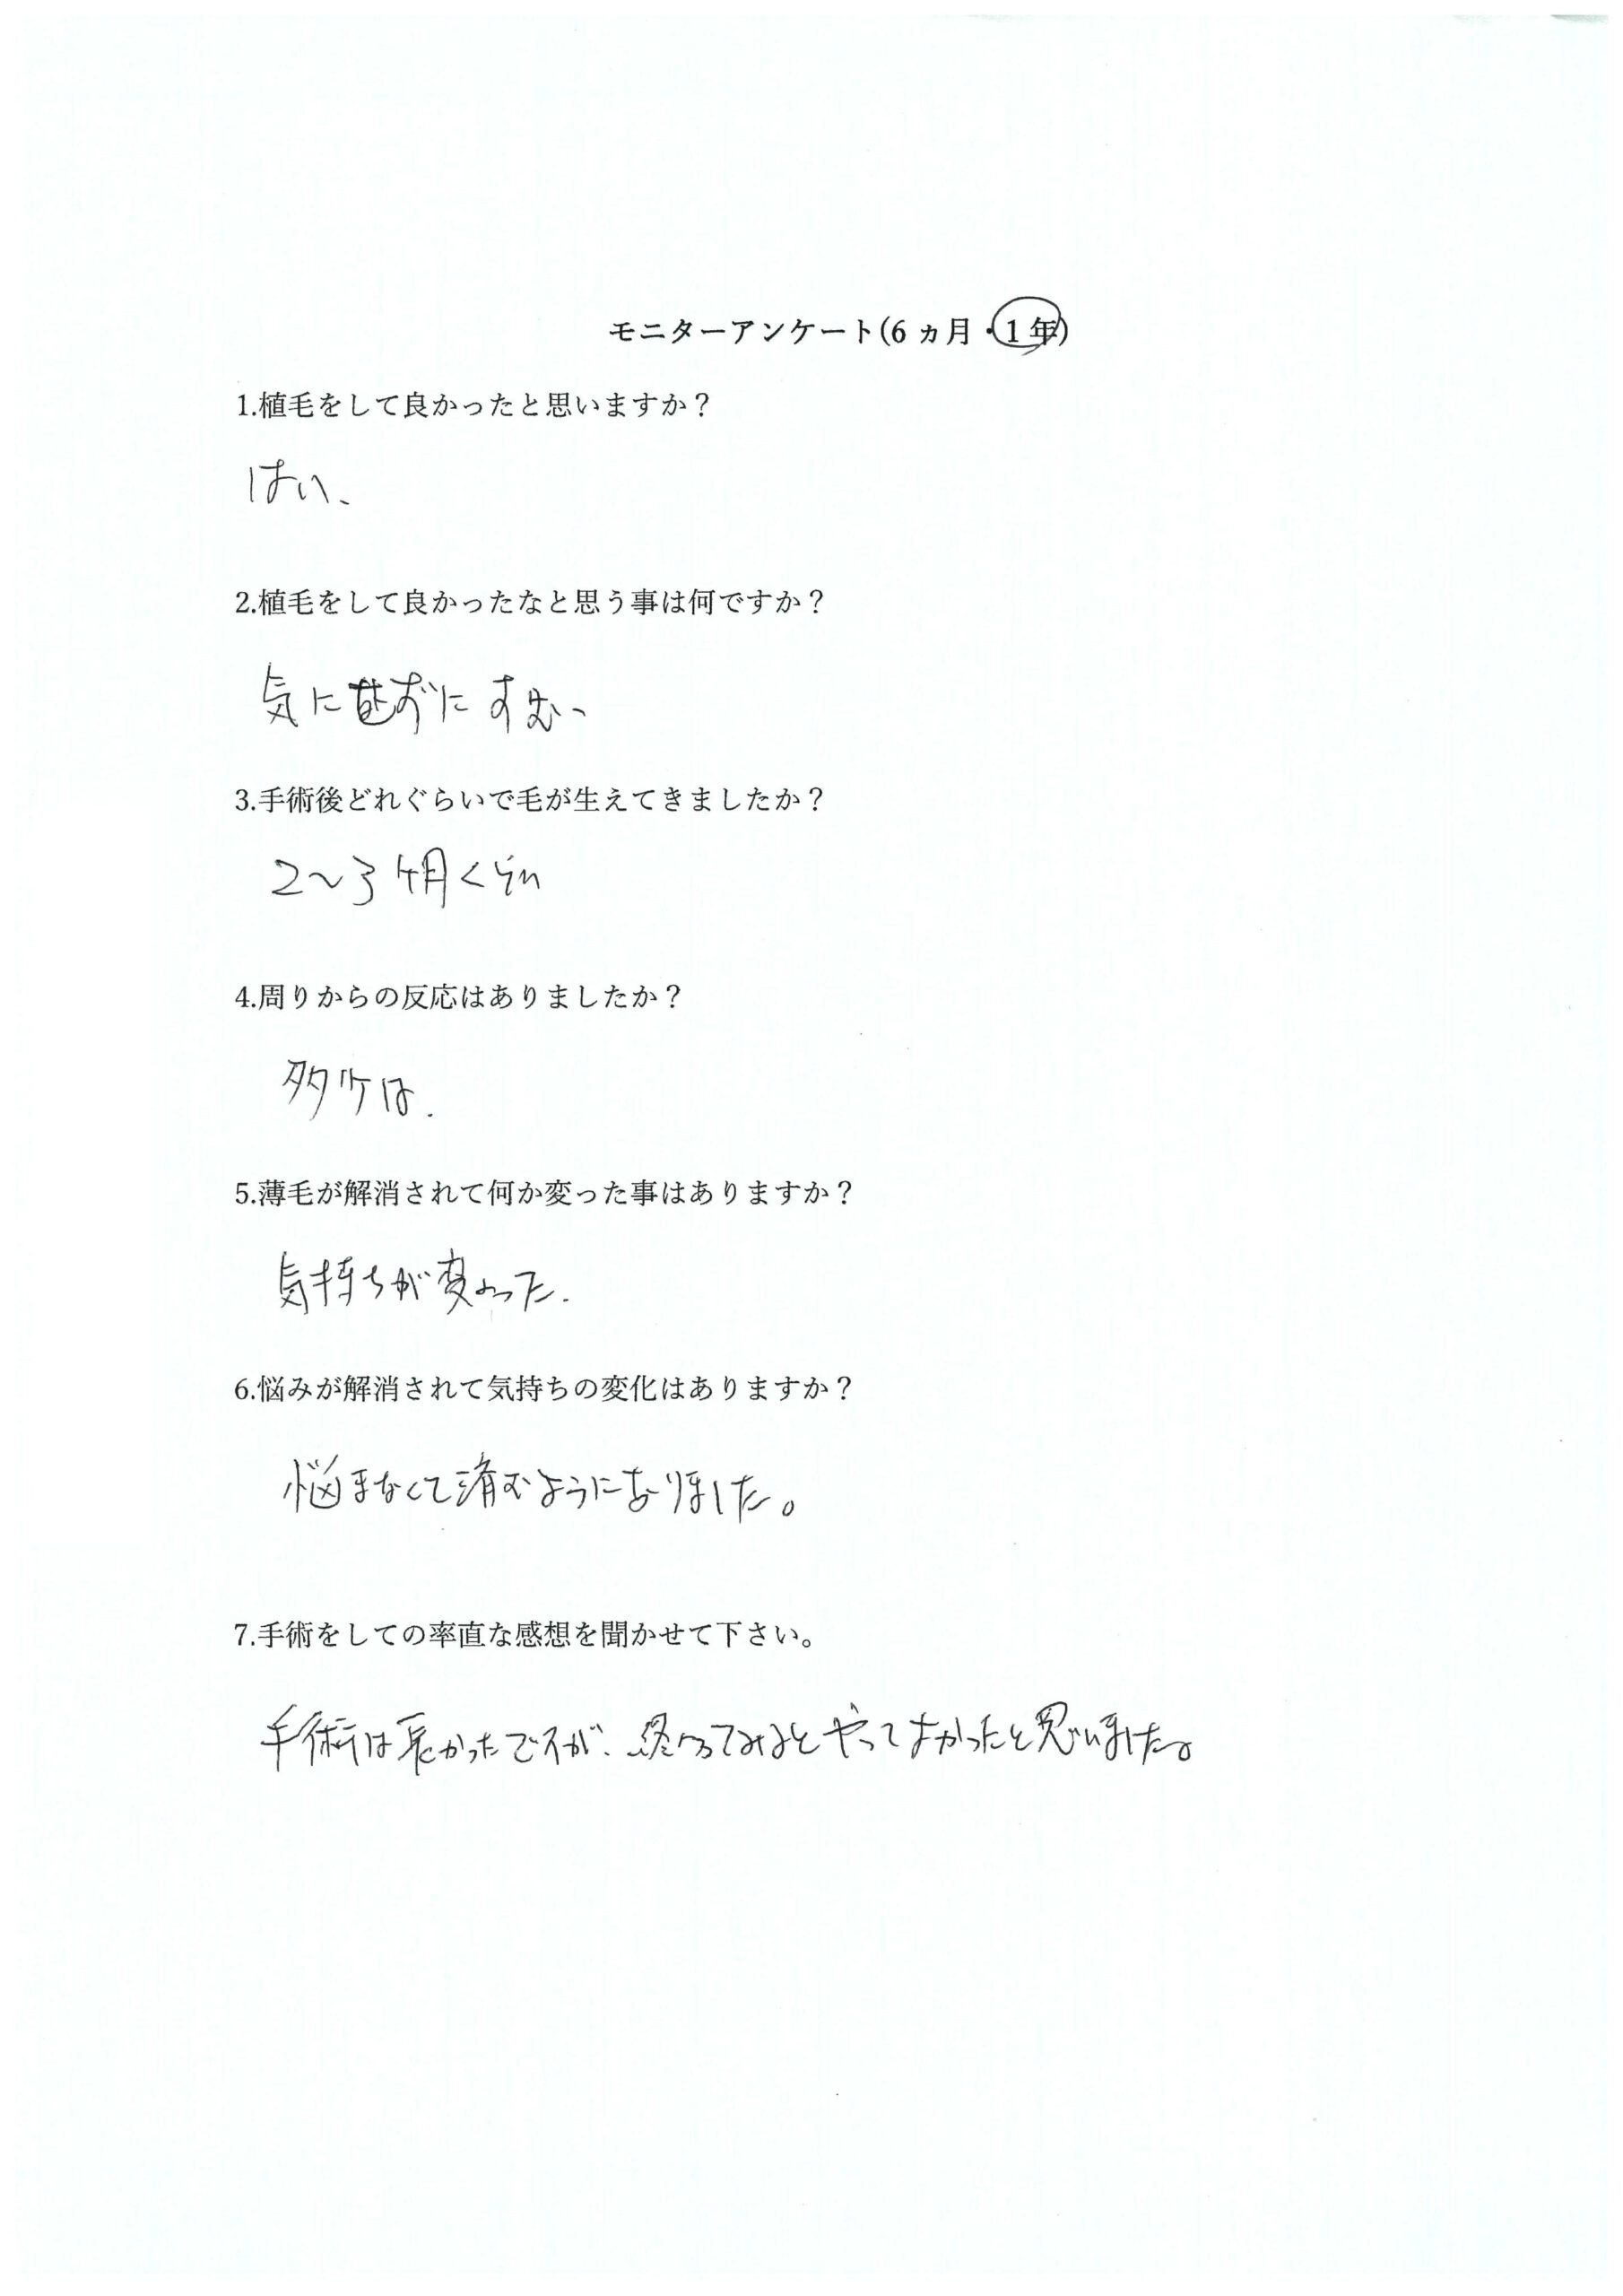 モニターアンケート(6 ヵ月・1 年)
1.植毛をして良かったと思いますか？
はい、
2.植毛をして良かったなと思う事は何ですか？
気にせずにすむ、
3.手術後どれぐらいで毛が生えてきましたか？
2〜3ケ月くらい
4.周りからの反応はありましたか？
5.薄毛が解消されて何か変った事はありますか？
気持ちが変わった.
6.悩みが解消されて気持ちの変化はありますか？
悩まなくて済むようになりました。
7.手術をしての率直な感想を聞かせて下さい。
手術は長かったですが、終わってみるとやってよかったと思いました。